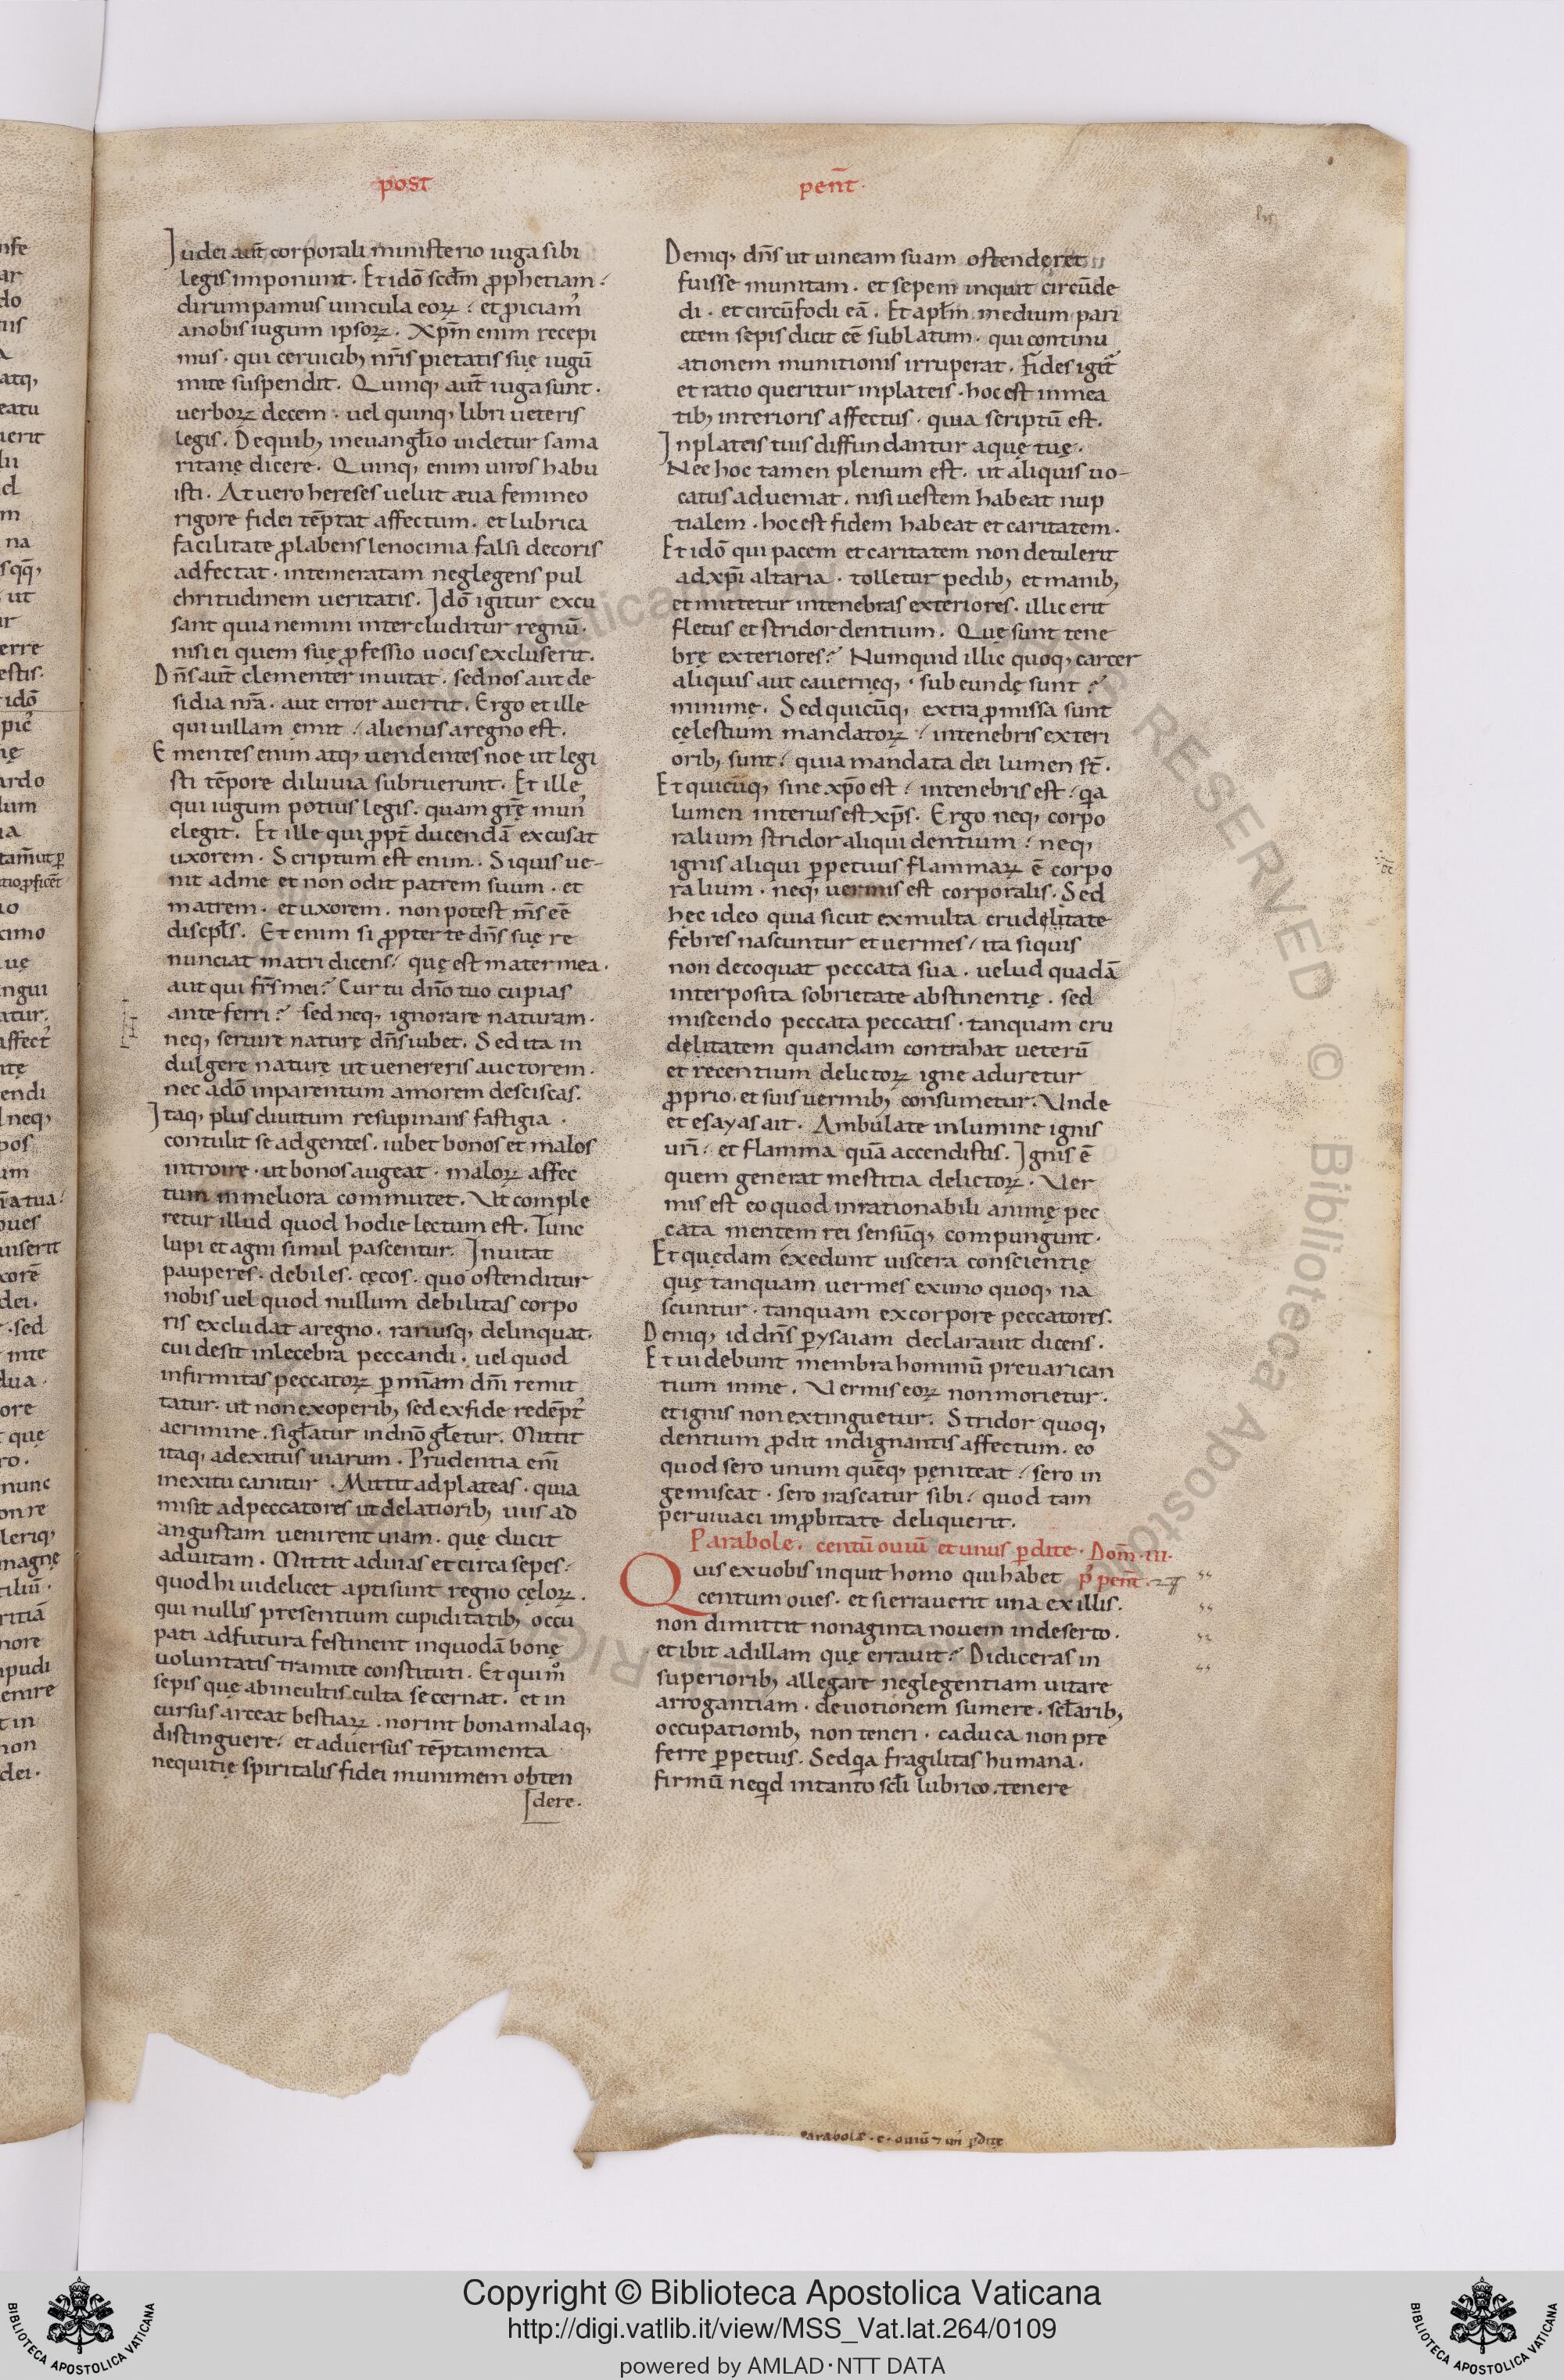 post
pent̄.
Iudei aut̄ corporali ministerio iuga sibi
legis imponunt. Et idō scd̄m ꝓphetiam·
dirumpamus uincula eoꝝ · et ꝓiciam᾽
anobis iugum ipsoꝝ. Xp̄m enim recepi
mus · qui ceruicib; nr̄is pietatis suę iugū
mite suspendit. Quinq; aut̄ iuga sunt ·
uerboꝝ decem · uel quinq; libri ueteris
legis. Dequib; ineuangl̄io uidetur sama
ritanę dicere. Quinq; enim uiros habu
isti. At uero hereses uelut æua femineo
rigore fidei tēptat affectum. et lubrica
facilitate ꝓlabens lenocinia falsi decoris
adfectat · intemeratam neglegens pul
chritudinem ueritatis. Idō igitur excu
sant quia nemini intercluditur regnū·
nisi ei quem suę ꝓfessio uocis excluserit.
Dn̄s aut̄ clementer inuitat. sed nos aut de
sidia nr̄a · aut error auertit. Ergo et ille
qui uillam emit · alienus aregno est.
Ementes enim atq; uendentes noe ut legi
sti tēpore diluuia subruerunt. Et ille
qui iugum potius legis. quam gr̄ę mun᾽
elegit. Et ille qui ꝓpt̄ ducendā excusat
uxorem. Scriptum est enim. Siquis ue-
nit adme et non odit patrem suum. et
matrem. et uxorem. non potest m̄s eē
discpl̄s. Et enim si ꝓpter te dn̄s suę re
nunciat matri dicens· quę est mater mea.
aut qui fr̄s mei? Cur tu dn̄o tuo cupias
ante ferri? sed neq; ignorare naturam.
neq; seruire naturę dn̄s iubet. Sed ita in
dulgere naturę ut uenereris auctorem.
nec adō inparentum amorem desciscas.
Itaq; plus diuitum resupinans fastigia ·
contulit se adgentes. iubet bonos et malos
introire · ut bonos augeat · maloꝝ affec
tum inmeliora commutet. Ut comple
retur illud quod hodie lectum est. Tunc
lupi et agni simul pascentur. Inuitat
pauperes. debiles. cęcos. quo ostenditur
nobis uel quod nullum debilitas corpo
ris excludat aregno. rariusq; delinquat.
cui desit inlecebra peccandi. uel quod
infirmitas peccatoꝝ ꝑ mīam dn̄i remit
tatur. ut non exoperib; sed exfide redēpt᾽
acrimine. sigl̄atur indn̄o gl̄etur. Mittit
itaq; adexitus uiarum. Prudentia eni᷑
inexitu canitur. Mittit adplateas. quia
misit adpeccatores ut delatiorib; uiis ad
angustam uenirent uiam. quę ducit
aduitam. Mittit aduias et circa sepes·
quod hi uidelicet apti sunt regno cęloꝝ.
qui nullis presentium cupiditatib; occu
pati adfutura festinent inquodā bonę
uoluntatis tramite constituti. Et quimo᷑
sepis quę abincultis culta secernat. et in
cursus arceat bestiaꝝ. norint bona malaq;
distinguere· et aduersus tēptamenta
nequitię spiritalis fidei munimem obten
dere.
Deniq; dn̄s ut uineam suam ostenderet
fuisse munitam. et sepem inquit circūde
di. et circūfodi eā. Et apl̄m medium pari
etem sepis dicit eē sublatum. qui continu
ationem munitionis irruperat. Fides igit᷑
et ratio queritur inplateis. hoc est inmea
tib; interioris affectus. quia scriptū est.
Inplateis tuis diffundantur aquę tuę.
Nec hoc tamen plenum est. ut aliquis uo-
catus adueniat. nisi uestem habeat nup
tialem. hoc est fidem habeat et caritatem.
Et idō qui pacem et caritatem non detulerit
ad xp̄i altaria. tolletur pedib; et manib;
et mittetur intenebras exteriores. illic erit
fletus et stridor dentium. Quę sunt tene
brę exteriores? Numquid illic quoq; carcer
aliquis aut cauerneq; · subeundę sunt?
minimę. Sed quicūq; extra ꝓmissa sunt
cęlestium mandatoꝝ · intenebris exteri
orib; sunt· quia mandata dei lumen st̄.
Et quicūq; sine xp̄o est · intenebris est · qa
lumen interius est xp̄s. Ergo neq; corpo
ralium stridor aliqui dentium · neq;
ignis aliqui ꝑpetuus flammaꝝ ē corpo
ralium. neq; uermis est corporalis. Sed
hęc ideo quia sicut exmulta crudelitate
febres nascuntur et uermes· ita siquis
non decoquat peccata sua. uelud quadā
interposita sobrietate abstinentię. sed
miscendo peccata peccatis. tanquam cru
delitatem quandam contrahat ueterū
et recentium delictoꝝ igne aduretur
ꝓprio. et suis uermib; consumetur. Unde
et esayas ait. Ambulate inlumine ignis
uri᷑. et flamma quā accendistis. Ignis ē
quem generat mestitia delictoꝝ. Uer
mis est eo quod inrationabili animę pec
cata mentem rei sensūq; compungunt.
Et quędam exedunt uiscera conscientię
quę tanquam uermes exuno quoq; na
scuntur. tanquam excorpore peccatores.
Deniq; id dn̄s ꝑ ysaiam declarauit dicens.
Et uidebunt membra hominū preuarican
tium inme. Uermis eoꝝ non morietur.
et ignis non extinguetur. Stridor quoq;
dentium ꝓdit indignantis affectum. eo
quod sero unum quēq; pęniteat · sero in
gemiscat. sero irascatur sibi· quod tam
peruiuaci imꝓbitate deliquerit.
Parabole. centū ouiū et unius ꝑdite. Dom̄. iii.
p᾽ pent̄.
Quis exuobis inquit homo qui habet
centum oues. et si errauerit una exillis.
non dimittit nonaginta nouem indeserto.
et ibit adillam quę errauit? Didiceras in
superiorib; allegare neglegentiam uitare
arrogantiam. deuotionem sumere. scl̄arib;
occupationib; non teneri. caduca non pre
ferre ꝑpetuis. Sed qa fragilitas humana.
firmū neqd intanto scl̄i lubrico. tenere
Parabolæ · c · ouiū ⁊ uni᾽ ꝑditę
Copyright © Biblioteca Apostolica Vaticana
http://digi.vatlib.it/view/MSS_Vat.lat.264/0109
powered by AMLAD·NTT DATA
BIBLIOTECA APOSTOLICA VATICANA
BIBLIOTECA APOSTOLICA VATICANA